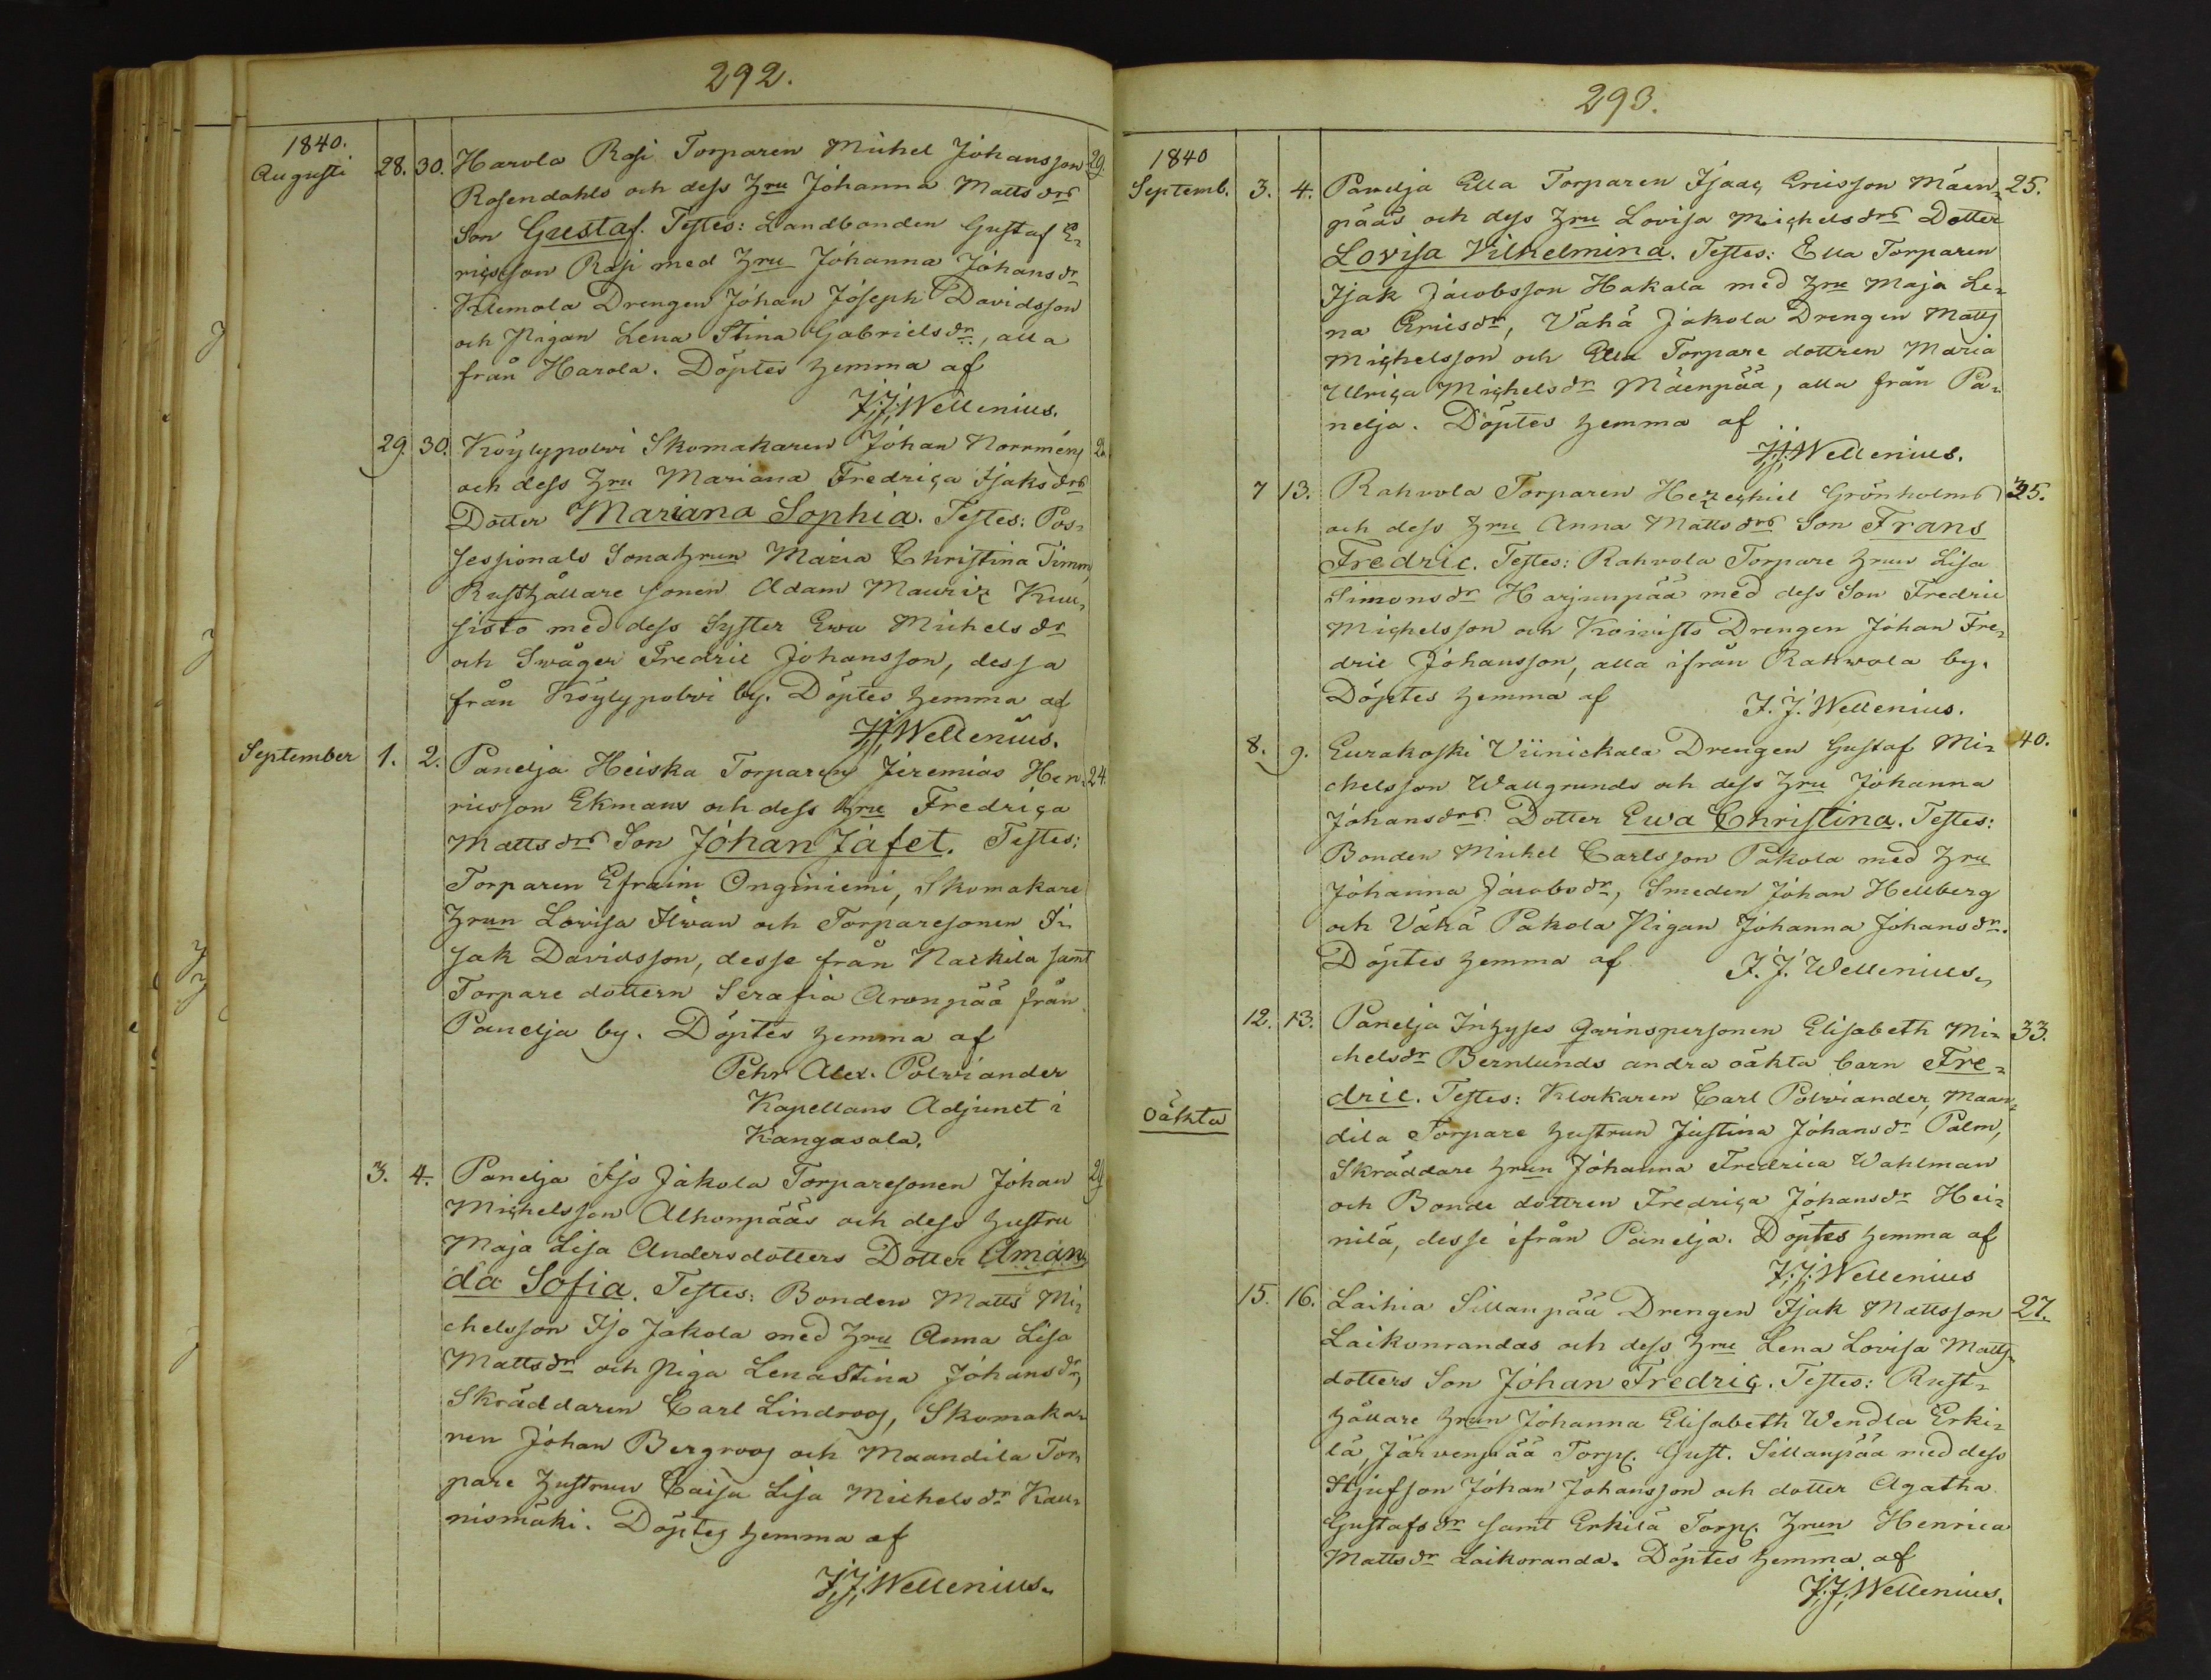 292.
1840.
Augusti 28. 30. Harola Rasi Torparen Michel Johansson 29.
Rosendahls och dess hru Johanna Matts drs
Son Gustaf. Testes: Landbonden Gustaf E-
ricsson Rasi med hru Johanna Johans dr
Klemola Drengen Johan Joseph Davidsson
och Pigan Lena Stina Gabriels dr, alla
från Harola. Döptes hemma af
J. J. Wellenius.
29. 30. Köylypolvi Skomakaren Johan Norrméns
och dess hru Mariana Fredrica Isaks drs
Dotter Mariana Sophia. Testes: Pos-
sessionats Sonahrun Maria Christina Timm,
Rusthållare sonen Adam Mauriz Kuu-
sisto med dess Syster Ewa Michels dr
och Swåger Fredric Johansson, dessa
från Köylypolvi by. Döptes hemma af
J. J. Wellenius.
September 1. 2. Panelja Heiska Torparens Jeremias Hen- 24.
ricsson Ekmans och dess hru Fredrica
Matts drs Son Johan Jafet. Testes:
Torparen Efraim Onginiemi, Skomakare
hrun Lovisa Ilvan och Torparesonen I-
sak Davidsson, desse från Narkila samt
Torpare dottern Serafia Aronpää från
Panelja by. Döptes hemma af
Pehr Alex. Polviander
Kapellans Adjunct i
Kangasala.
3. 4. Panelja Iso Jakola Torparesonen Johan 29
Michelsson Alhonpääs och dess hustru
Maja Lisa Andersdotters Dotter Aman-
da Sofia. Testes: Bonden Matts Mi-
chelsson Iso Jakola med hru Anna Lisa
Matts dr och Piga Lenastina Johans dr,
Skräddaren Carl Lindroos, Skomaka-
ren Johan Bergroos och Maandila Tor-
pare hustrun Caisa Lisa Michels dr Kau-
nismäki. Döptes hemma af
J. J. Wellenius.
293.
1840
Septemb. 3. 4. Panelja Ella Torparen Isaac Ericsson Mäen- 25.
pääs och dess hru Lovisa Michels drs Dotter
Lovisa Vilhelmina. Testes: Ella Torparen
Isak Jacobsson Hakala med hru Maja Le-
na Erics dr, Vähä Jakola Drengen Matts
Michelsson och Ella Torpare dottren Maria
Ulrica Michels dr Mäenpää, alla från Pa-
nelja. Döptes hemma af
J. J. Wellenius.
7 13. Rahvola Torparen Hezechiel Grönholms 35.
och dess hru Anna Matts drs Son Frans
Fredric. Testes: Rahvola Torpare hrun Lisa
Simons dr Harjunpää med dess Son Fredric
Michelsson och Koivisto Drengen Johan Fre-
dric Johansson, alla ifrån Rahvola by.
Döptes hemma af J. J. Wellenius.
8. 9. Eurakoski Viinickala Drengen Gustaf Mi- 40.
chelsson Wallgrunds och dess hru Johanna
Johans drs Dotter Ewa Christina. Testes:
Bonden Michel Carlsson Pakola med hru
Johanna Jacobs dr, Smeden Johan Hellberg
och Vähä Pakola Pigan Johanna Johans dr.
Döptes hemma af J. J. Wellenius.
12. 13. Panelja Inhyses Qvinspersonen Elisabeth Mi- 33.
chels dr Bernlunds andra oäkta barn Fre-
dric. Testes: Klockaren Carl Polviander, Maan-
oäkta
dila Torpare hustrun Justina Johans dr Palm,
Skräddare hrun Johanna Fredrica Wahlman
och Bonde dottren Fredrica Johans dr Hei-
nilä, desse ifrån Panelja. Döptes hemma af
J. J. Wellenius
15. 16. Laihia Sillanpää Drengen Isak Mattsson 27.
Laikonrandas och dess hru Lena Lovisa Matts-
dotters Son Johan Fredric. Testes: Rust-
hållare hrun Johanna Elisabeth Wendla Erki-
lä, Järvenpää Torp. Gust. Sillanpää med dess
Stjufson Johan Johansson och dotter Agatha
Gustafs dr samt Erkilä Torp. hrun Henrica
Matts dr Laikoranda. Döptes hemma af
J. J. Wellenius.